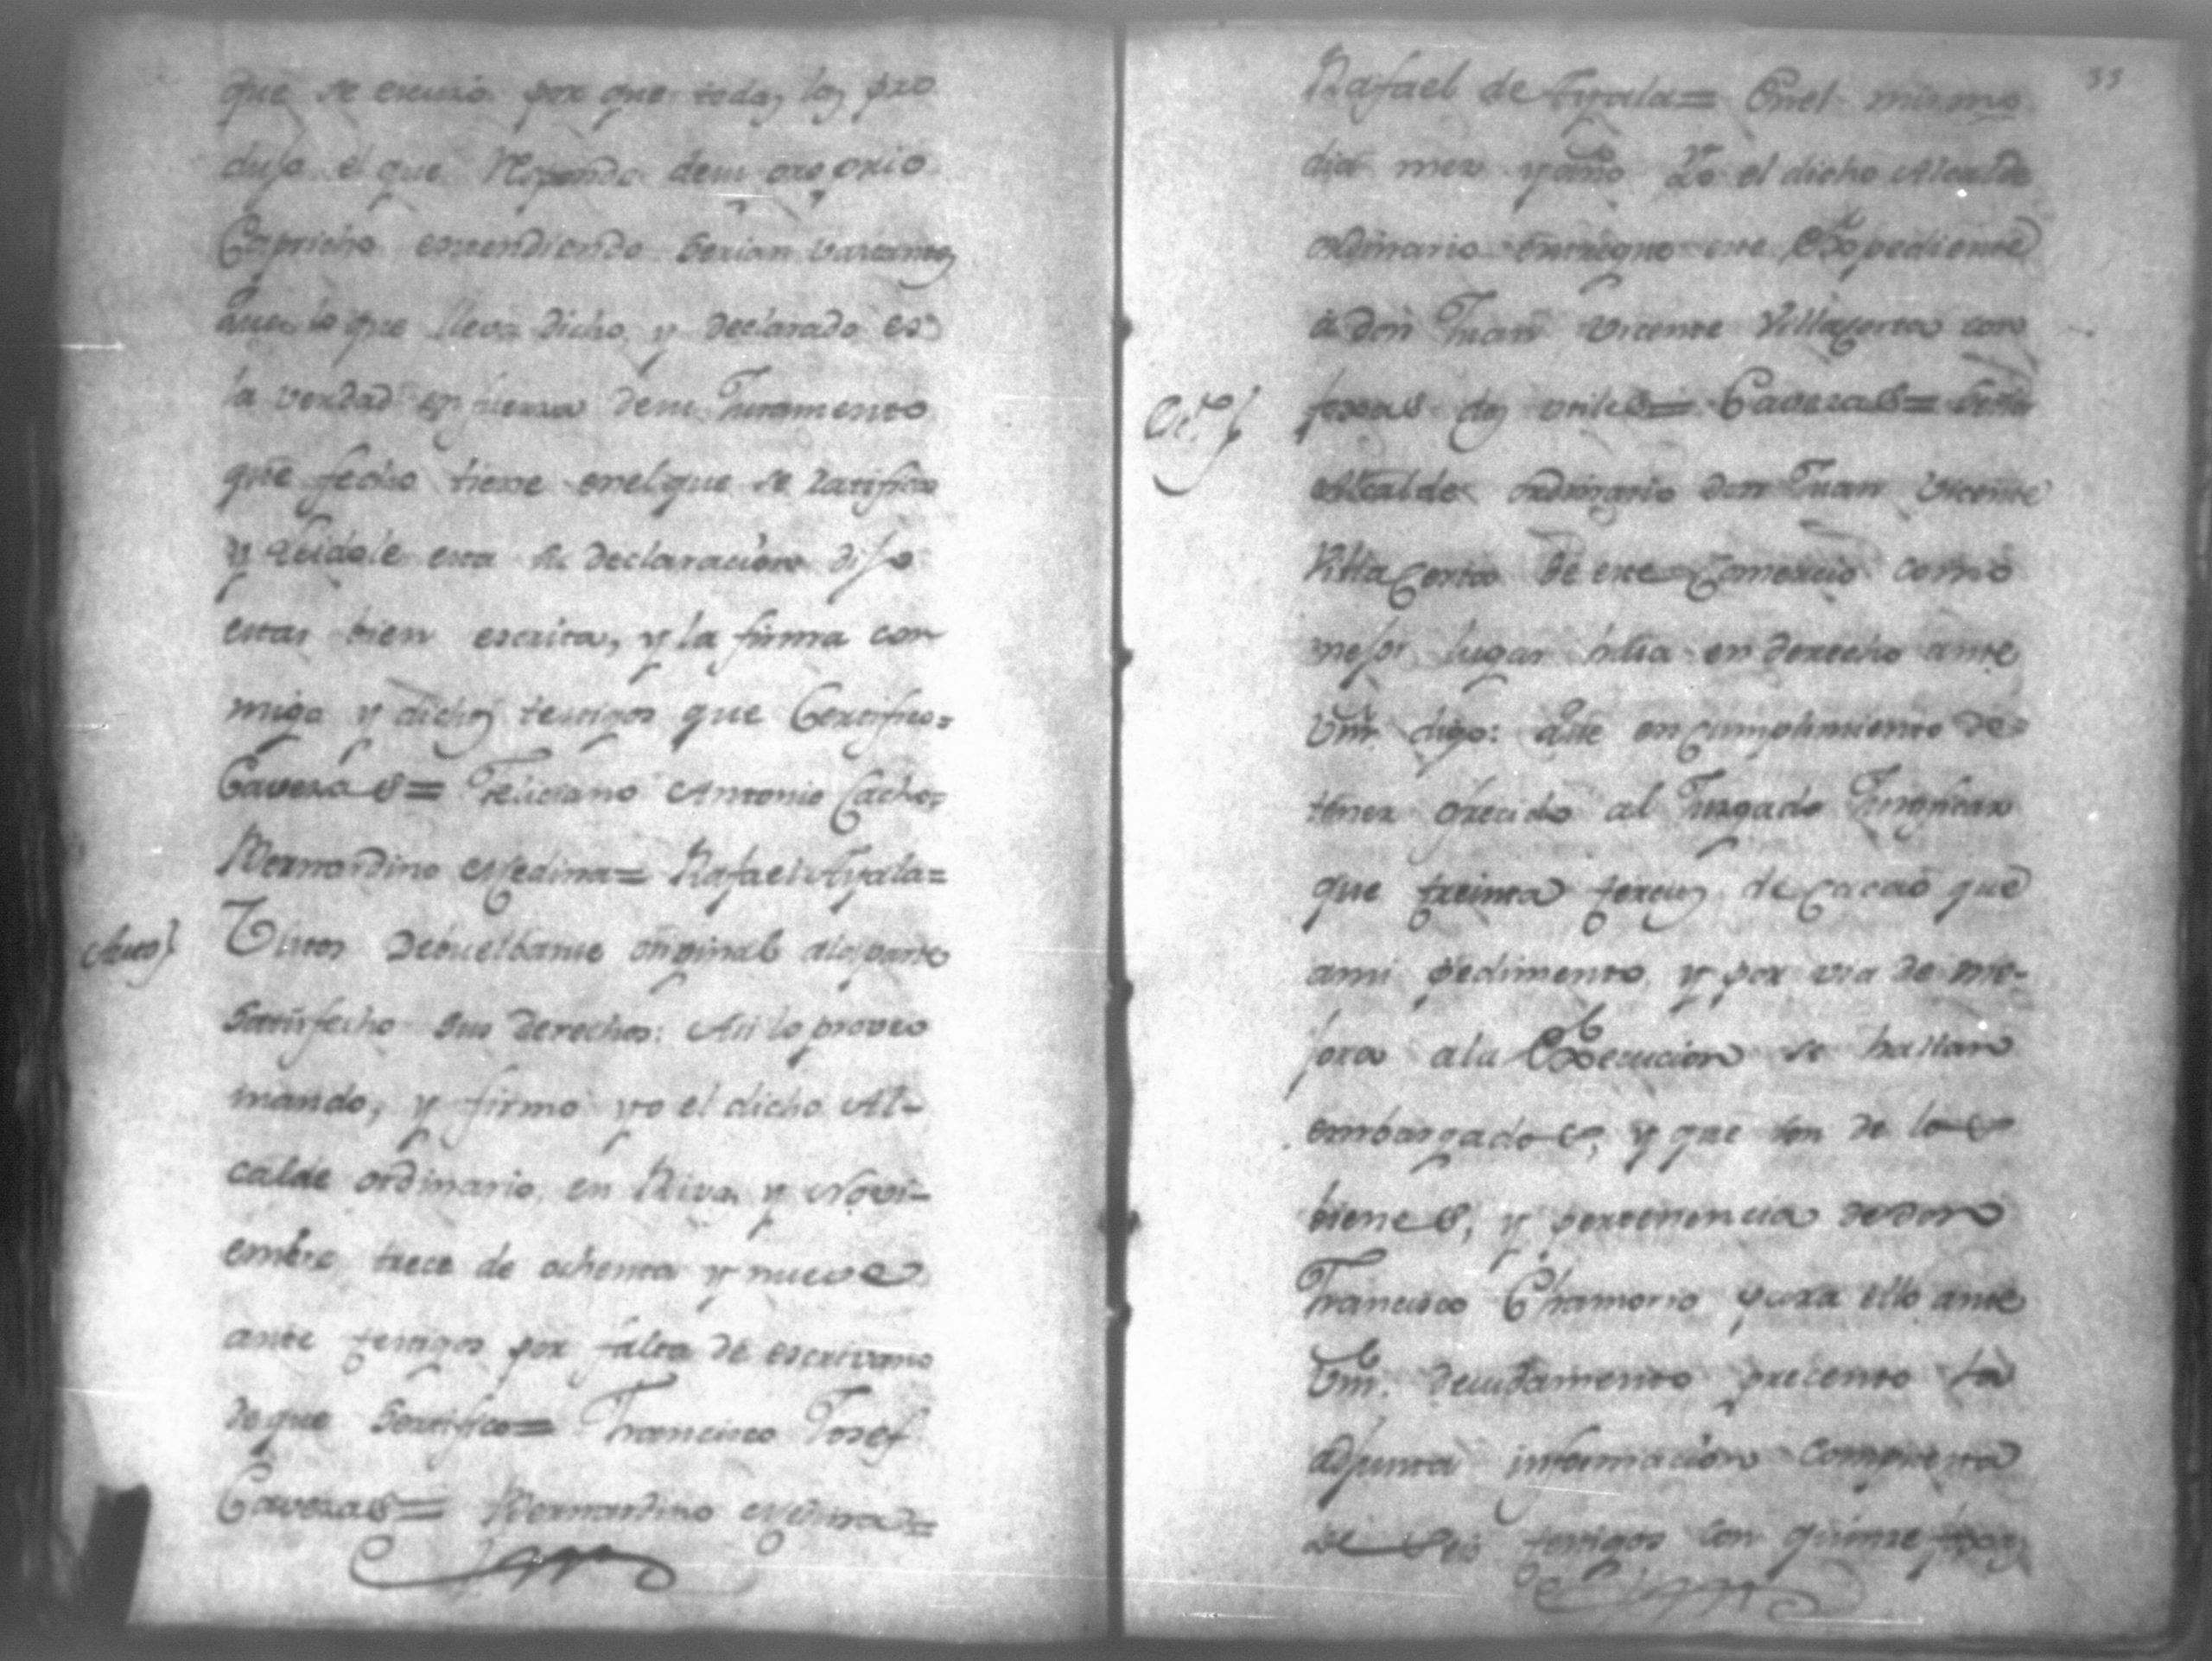 que se escusó por que todas las pro
dujo el que Responde desu proprio
Capricho entendiendo serian bastantes
Que lo que lleva dicho, y declarado es
la verdad en fuerza desu Juramento
que fecho tiene enelque se ratificó
y Leidole esta su declaracion dijo
estar bien escrita, y la firma con
migo y dichos testigos que Certifico=
Caveras= Feliciano Antonio Cacho=
Bernardino Medina= Rafael Ayala=
Auto} Vistos debuelbanse original ala parte
satisfecho sus derechos: Asi lo proveo
mando, y firmo yo el dicho Al-
calde ordinario en Rivas y Novi-
embre trece de ochenta y nueve
ante testigos por falta de escrivano
deque Sertifico= Francisco Josef
Caveras= Bernardino Medina=
33
Rafael de Ayala= Enel mismo
dia mes y año Yo el dicho Alcalde
ordinario entregue este Expediente
a don Juan Vicente Villacorta con
foxas dos utiles= Caveras= Señor
Alcalde ordinario don Juan Vicente
Villa Corta de este Comercio como
mejor lugar haia en derecho ante
Vm. digo: Que en cumplimiento de
tener ofrecido al Jusgado Justificar
que treinta tercios de Cacao que
ami pedimento, y por via de me-
jora ala Execucion se hallan
embargados, y que son de los
bienes, y pertenencia de don
Francisco Chamorro para ello ante
Vm. devidamente precento la
adjunta informacion compuesta
de seis testigos con quinse foxas